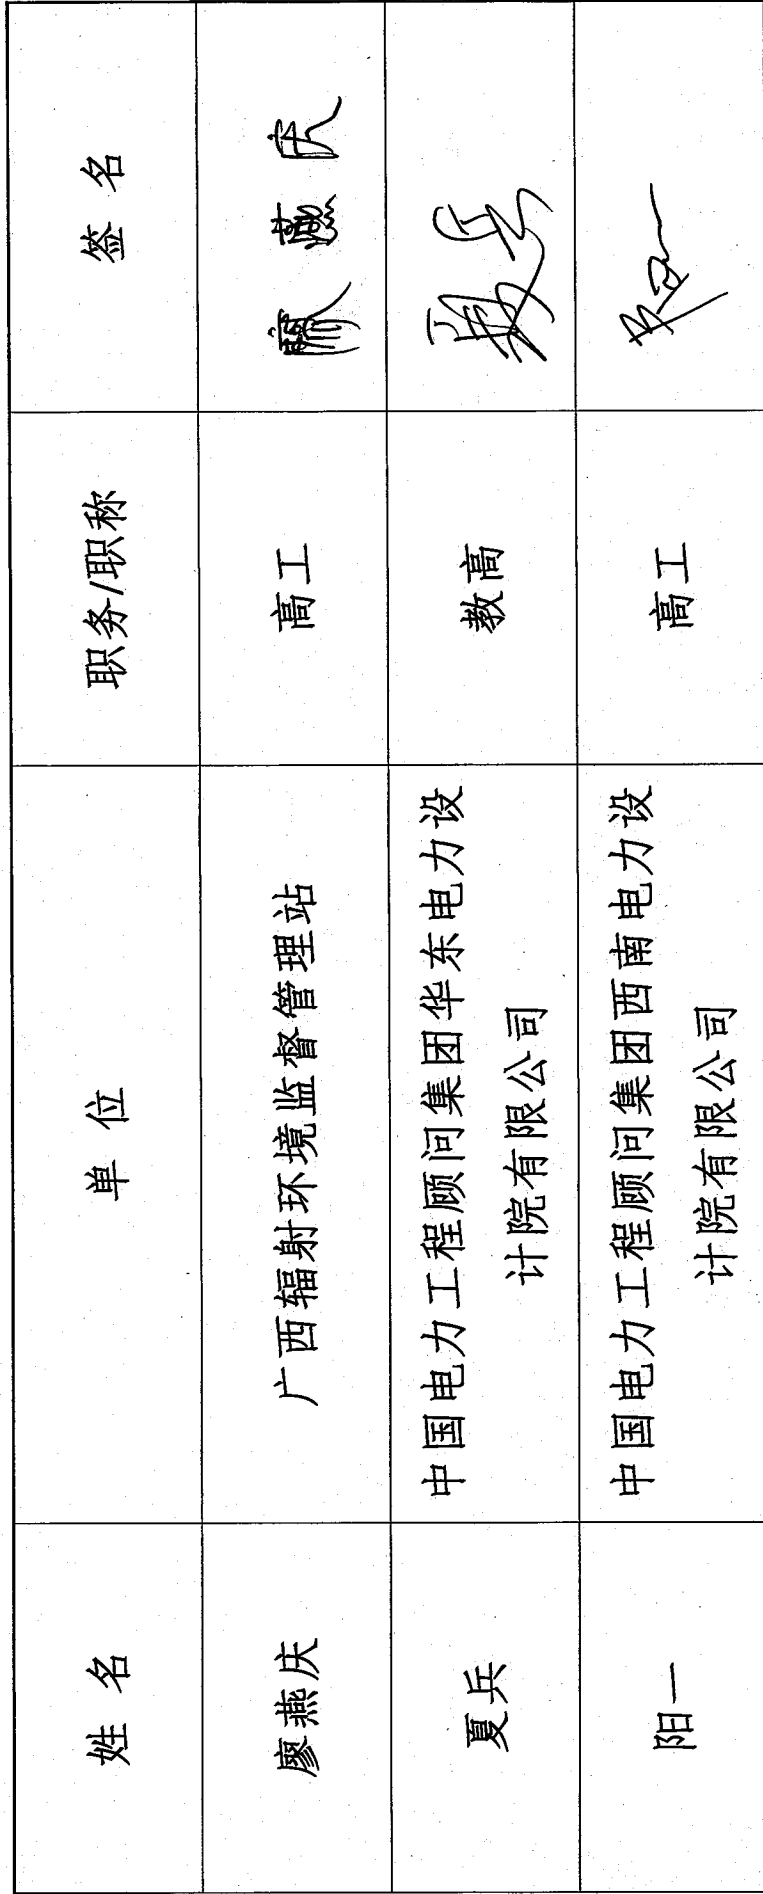 姓 名
单 位
职务/职称
签 名
廖燕庆
广西辐射环境监督管理站
高工
廖燕庆
夏兵
中国电力工程顾问集团华东电力设
计院有限公司
教高
夏兵
阳一
中国电力工程顾问集团西南电力设
计院有限公司
高工